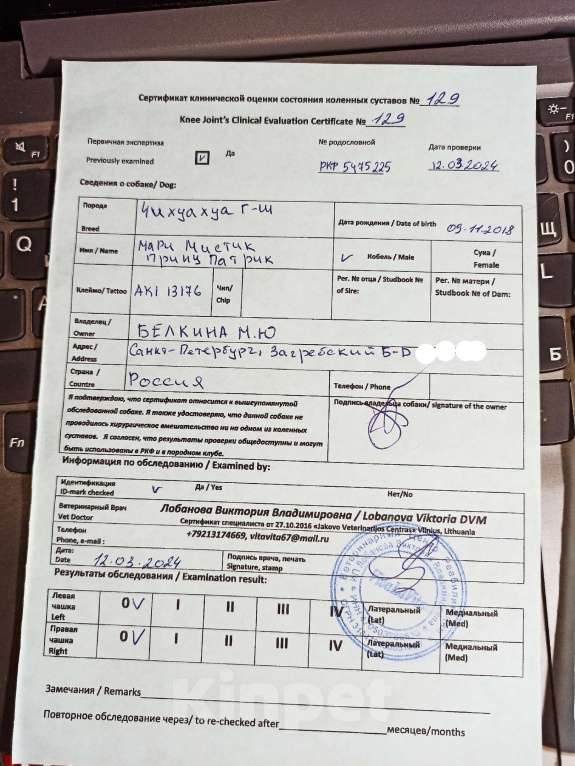 Сертификат клинической оценки состояния коленных суставов № 129
Knee Joint's Clinical Evaluation Certificate № 129
Первичная экспертиза № родословной Дата проверки
Previously examined V Да РКФ 5475225 12.03.2024
Сведения о собаке/ Dog:
Порода Чихуахуа Г-Ш Дата рождения / Date of birth 09.11.2018
Breed
Имя / Name Мари Мистик V Кобель / Male Сука /
Принц Патрик Female
Клеймо/ Tattoo AKI 13176 Чип/ Рег. № отца / Studbook № Рег. № матери /
Chip of Sire: Studbook № of Dam:
Владелец / БЕЛКИНА М.Ю
Owner
Адрес / Санкт-Петербург, Загребский Б-Р
Address
Страна / Россия Телефон / Phone
Countre
Я подтверждаю, что сертификат относится к вышеупомянутой Подпись владельца собаки/ signature of the owner
обследованной собаке. Я также удостоверяю, что данной собаке не
проводилось хирургическое вмешательство ни на одном из коленных
суставов. Я согласен, что результаты проверки общедоступны и могут
быть использованы в РКФ и в породном клубе.
Информация по обследованию / Examined by:
Идентификация V Да / Yes Нет/No
ID-mark checked
Ветеринарный Врач Лобанова Виктория Владимировна / Lobanova Viktoria DVM
Vet Doctor Сертификат специалиста от 27.10.2016 «Jakovo Veterinarijos Centras» Vilnius, Lithuania
Телефон +79213174669, vitavita67@mail.ru
Phone, e-mail :
Дата: 12.03.2024 Подпись врача, печать
Date Signature, stamp
Результаты обследования / Examination result:
Левая чашка Left 0 V I II III IV Латеральный (Lat) Медиальный (Med)
Правая чашка Right 0 V I II III IV Латеральный (Lat) Медиальный (Med)
Замечания / Remarks
Kinpet
Повторное обследование через/ to re-checked after месяцев/months